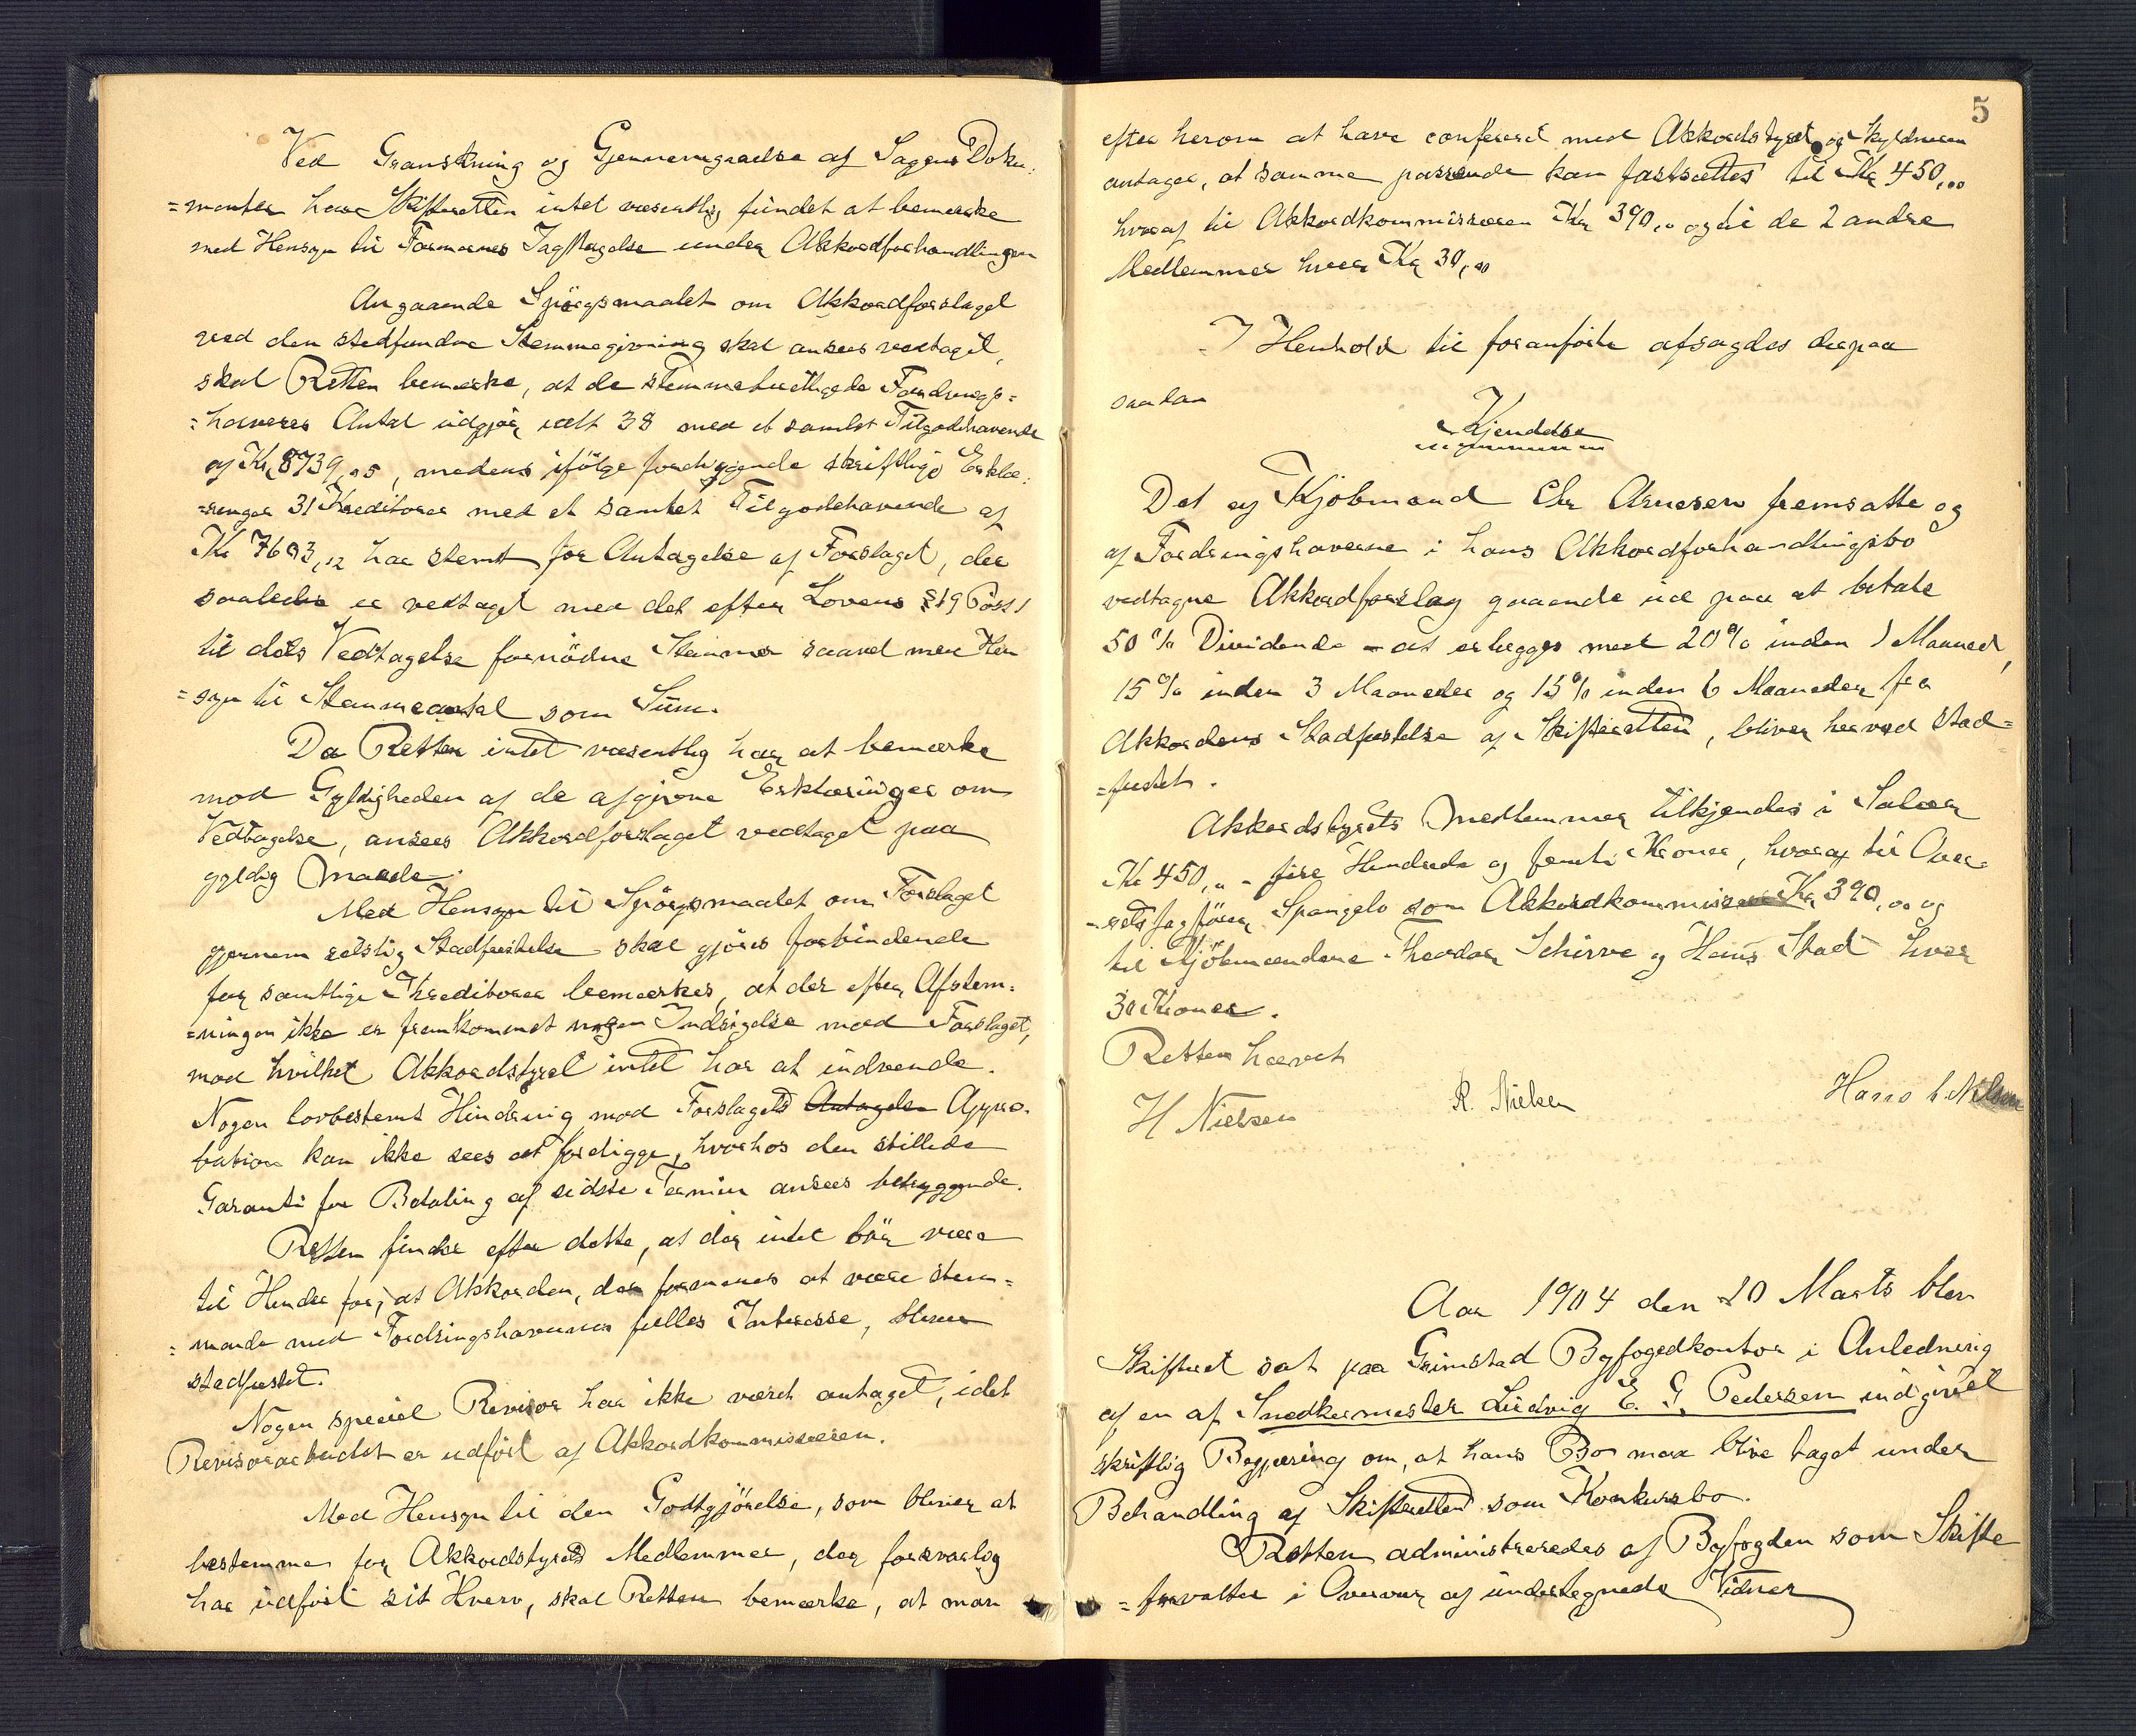 Ved Granskning og Gjennemgaaelse af Sagens Doku-
=menter har Skifteretten intet væsentlig fundet at bemærke
med Hensyn til Formernes Iagttagelse under Akkordforhandlingen
Angaaende Spörgsmaalet om Akkordforslaget
ved den stedfundne Stemmegivning skal ansees vedtaget,
skal Retten bemærke, at de stemmeberettigede Fordrings=
=haveres Antal udgjör ialt 38 med et samlet Tilgodehavende
af Kr 8739,05, medens ifölge foreliggende skriftlige Erklæ-
=ringer 31 Kreditorer med et samlet Tilgodehavende af
Kr 7693,12 har stemt for Antagelse af Forslaget, der
saaledes er vedtaget med det efter Lovens § 19 Post 1
til dets Vedtagelse fornödne Stemmer saavel med Hen
=syn til Stemmeantal som Sum.
Da Retten intet væsentlig har at bemærke
mod Gyldigheden af de afgivne Erklæringer om
Vedtagelse, ansees Akkordforslaget vedtaget paa
gyldig Maade.
Med Hensyn til Spörgsmaalet om Forslaget
gjennem retslig Stadfæstelse skal gjöres forbindende
for samtlige Kreditorer bemærkes, at der efter Afstem-
=ningen ikke er fremkommet nogen Indsigelse mod Forslaget,
mod hvilket Akkordstyret intet har at indvende.
Nogen lovbestemt Hindring mod Forslagets Antagelse Appro-
bation kan ikke sees at foreligge, hvorhos den stillede
Garanti for Betaling af sidste Termin ansees betryggende.
Retten finder efter dette, at der intet bör være
til Hinder for, at Akkorden, der formenes at være stem=
=mende med Fordringshavernes fælles Interesse, bliver
stadfæstet.
Nogen speciel Revisor har ikke været antaget, idet
Revisorarbeidet er udfört af Akkordkommissæren.
Med Hensyn til den Godtgjörelse, som bliver at
bestemme for Akkordstyrets Medlemmer, der forsvarlig
har udfört sit Hverv, skal Retten bemærke, at man
5
efter herom at have confereret med Akkordstyret og Skyldneren
antager, at samme passende kan fastsættes til Kr 450,00
hvoraf til Akkordkommissæren Kr 390,00 og til de 2 andre
Medlemmer hver Kr 30,00
I Henhold til foranförte afsagdes derpaa
saadan
Kjendelse
Det af Kjöbmand Chr Arnesen fremsatte og
af Fordringshaverne i hans Akkordforhandlingsbo
vedtagne Akkordforslag gaaende ud paa at betale
50 % Dividende - at erlægges med 20 % inden 1 Maaned,
15 % inden 3 Maaneder og 15 % inden 6 Maaneder fra
Akkordens Stadfæstelse af Skifteretten, bliver herved stad=
=fæstet.
Akkordstyrets Medlemmer tilkjendes i Salær
Kr 450,00 - fire Hundrede og femti Kroner, hvoraf til Over-
-retssagförer Spangelo som Akkordkommissær Kr 390,00 og
til Kjöbmændene Theodor Schirve og Hans Stad hver
30 Kroner.
Retten hævet
H Nielsen
R. Nielsen
Hans C. Nilsen
Aar 1904 den 20 Marts blev
Skifteret sat paa Grimstad Byfogedkontor i Anledning
af en af Snedkermester Ludvig E. G. Pedersen indgivet
skriftlig Begjæring om, at hans Bo maa blive taget under
Behandling af Skifteretten som Konkursbo.
Retten administreredes af Byfogden som Skifte
=forvalter i Overvær af undertegnede Vidner